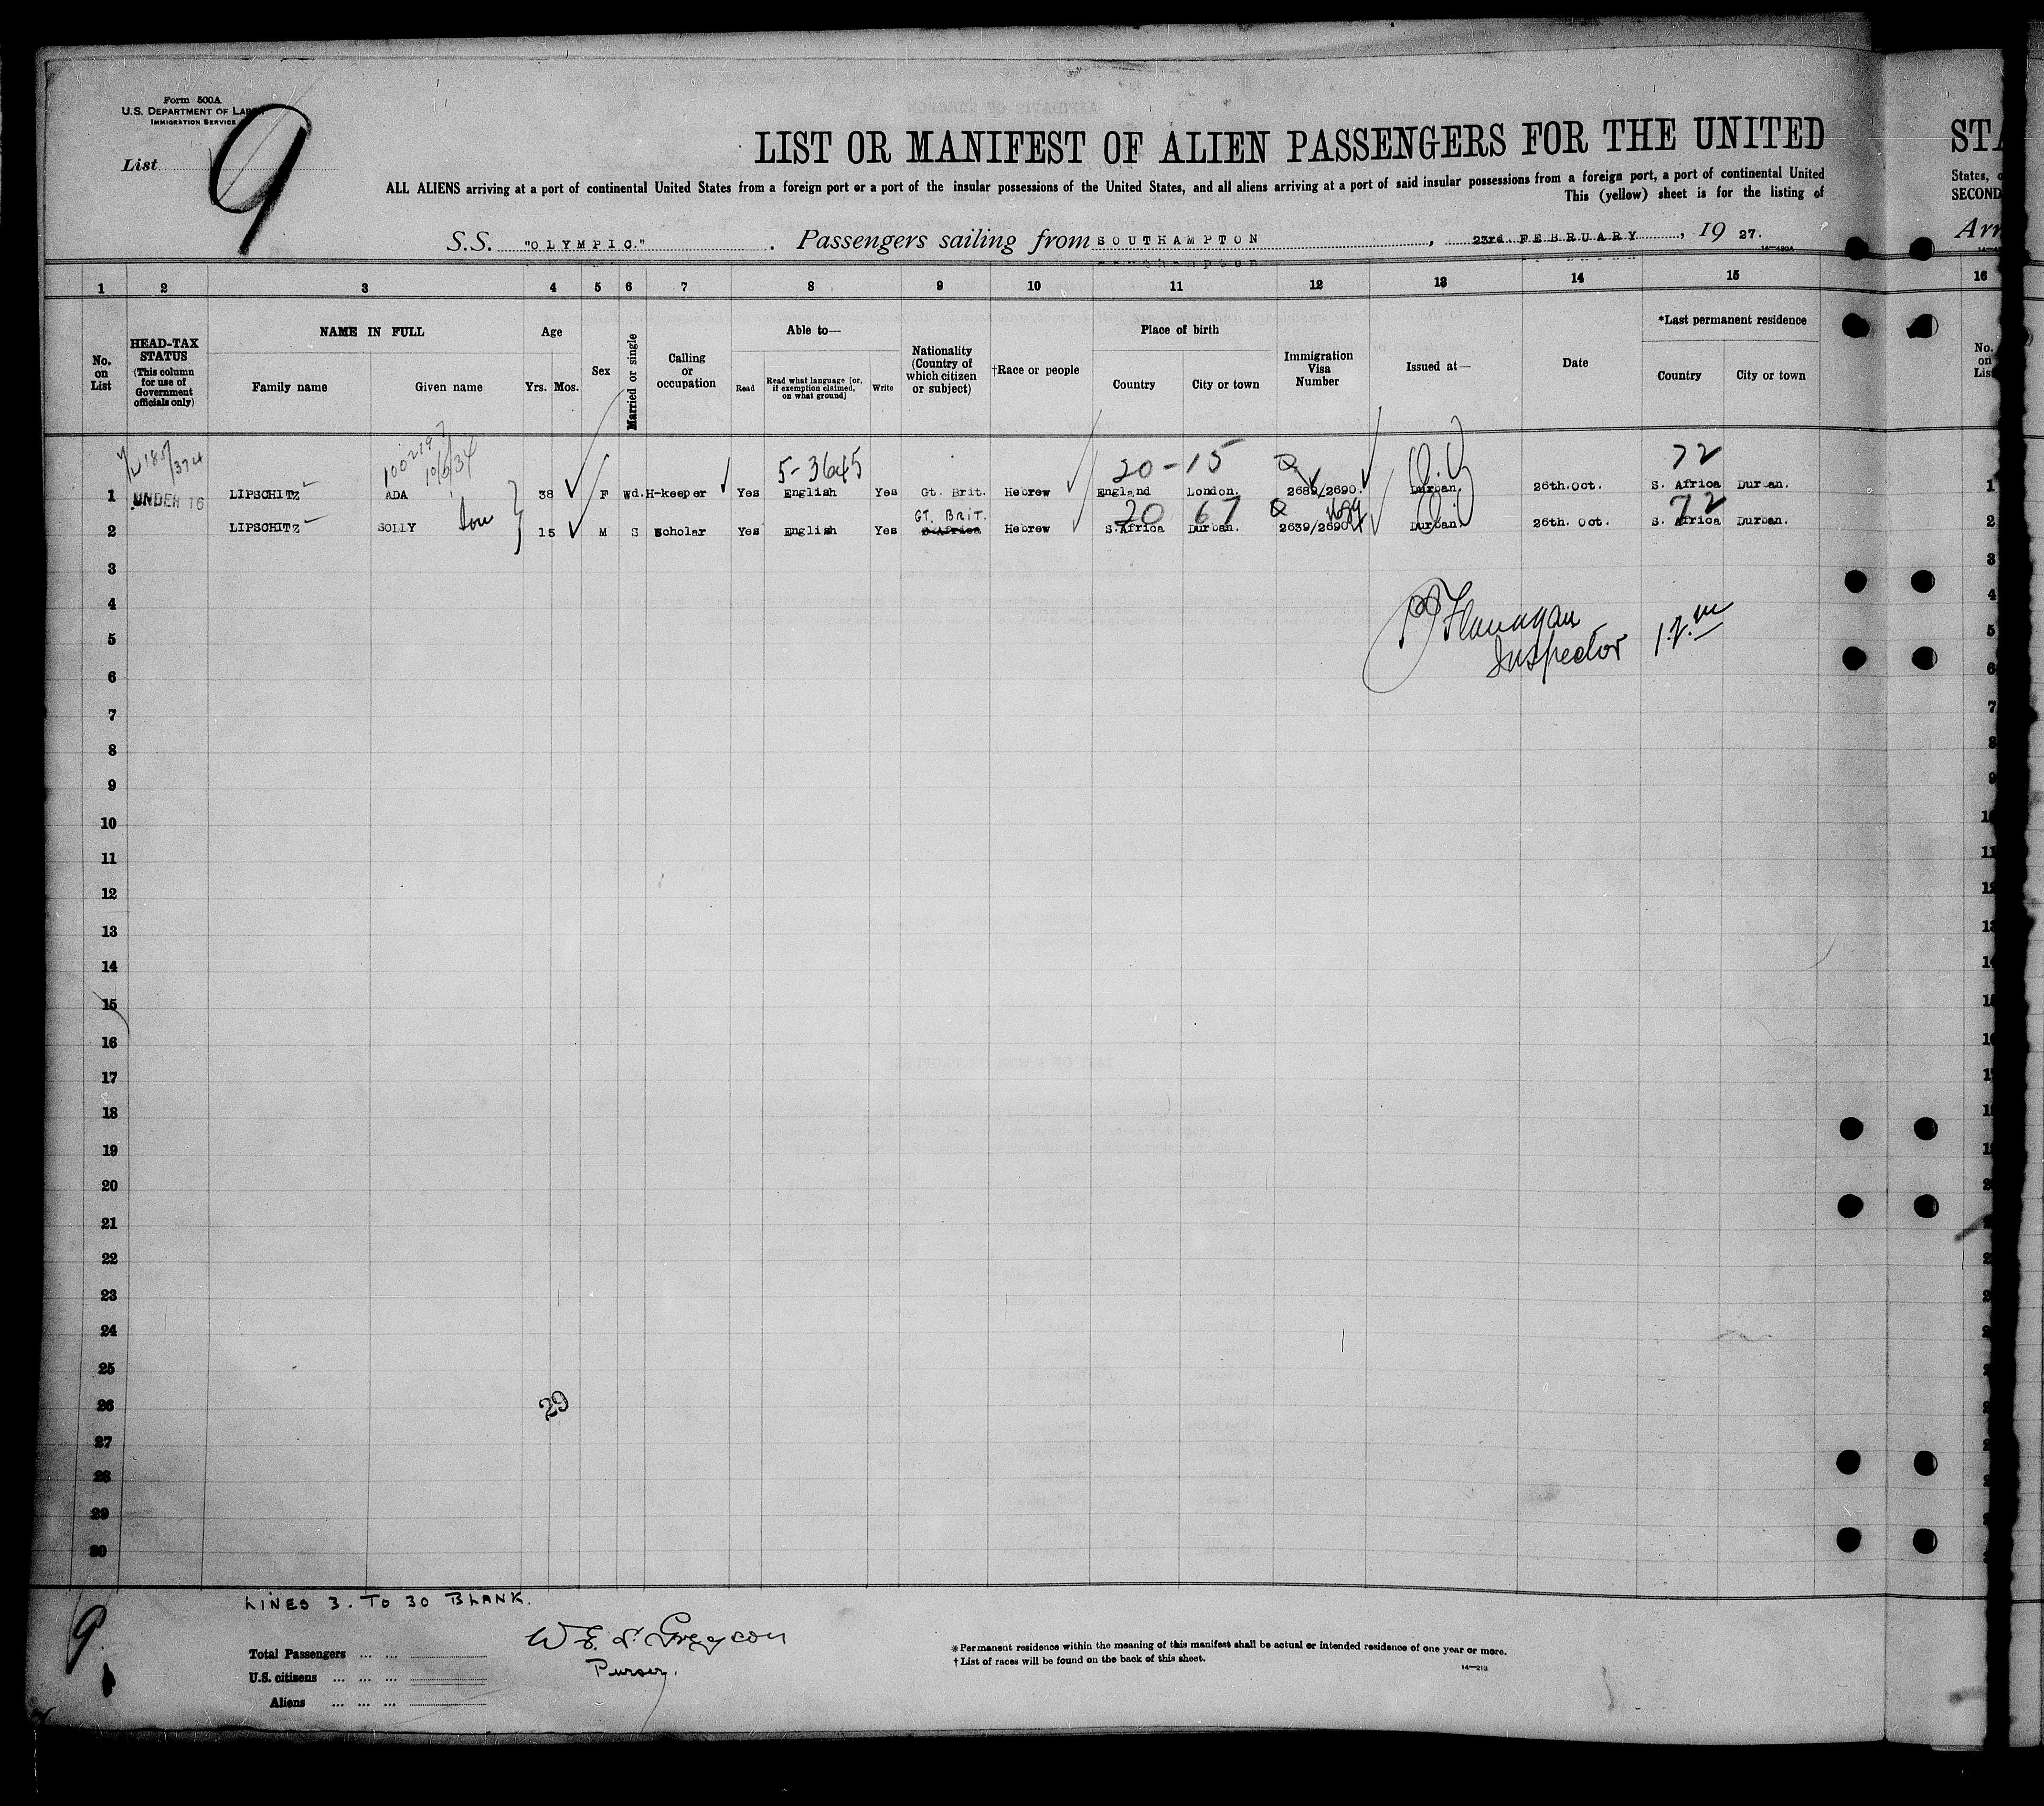 Form 500A
U.S. DEPARTMENT OF LABOR
IMMIGRATION SERVICE
List 9
LIST OR MANIFEST OF ALIEN PASSENGERS FOR THE UNITED
ALL ALIENS arriving at a port of continental United States from a foreign port or a port of the insular possessions of the United States, and all aliens arriving at a port of said insular possessions from a foreign port, a port of continental United
This (yellow) sheet is for the listing of
S.S. "OLYMPIC." Passengers sailing from SOUTHAMPTON, 23rd. FEBRUARY, 19 27.
STA
States, o
SECOND
Arr
1 2 3 4 5 6 7 8 9 10 11 12 13 14 15 16
No. on List
HEAD-TAX STATUS (This column for use of Government officials only)
NAME IN FULL
Family name Given name
Age
Yrs. Mos.
Sex
Married or single
Calling or occupation
Able to—
Read
Read what language [or, if exemption claimed, on what ground]
Write
Nationality (Country of which citizen or subject)
†Race or people
Place of birth
Country City or town
Immigration Visa Number
Issued at—
Date
*Last permanent residence
Country City or town
No. on List
5-3645 20-15 Q 72
1 UNDER 16 LIPSCHITZ ADA 38 F Wd. H-keeper Yes English Yes Gt. Brit. Hebrew England London. 2689/2690. Durban. 26th.Oct. S. Africa Durban. 1
GT. BRIT. 20 67 Q 72
2 LIPSCHITZ SOLLY Son 15 M S Scholar Yes English Yes S.Africa Hebrew S.Africa Durban. 2639/2690. Durban. 26th. Oct. S. Africa Durban. 2
3
4
5
6
7
8
9
10
11
12
13
14
15
16
17
18
19
20
21
22
23
24
25
26
27
28
29
30
Flanagan
Inspector
29
LINES 3. TO 30 BLANK.
9
Total Passengers ... ...
U.S. citizens ... ... ...
Aliens ... ... ...
Purser.
*Permanent residence within the meaning of this manifest shall be actual or intended residence of one year or more.
†List of races will be found on the back of this sheet.
14—213